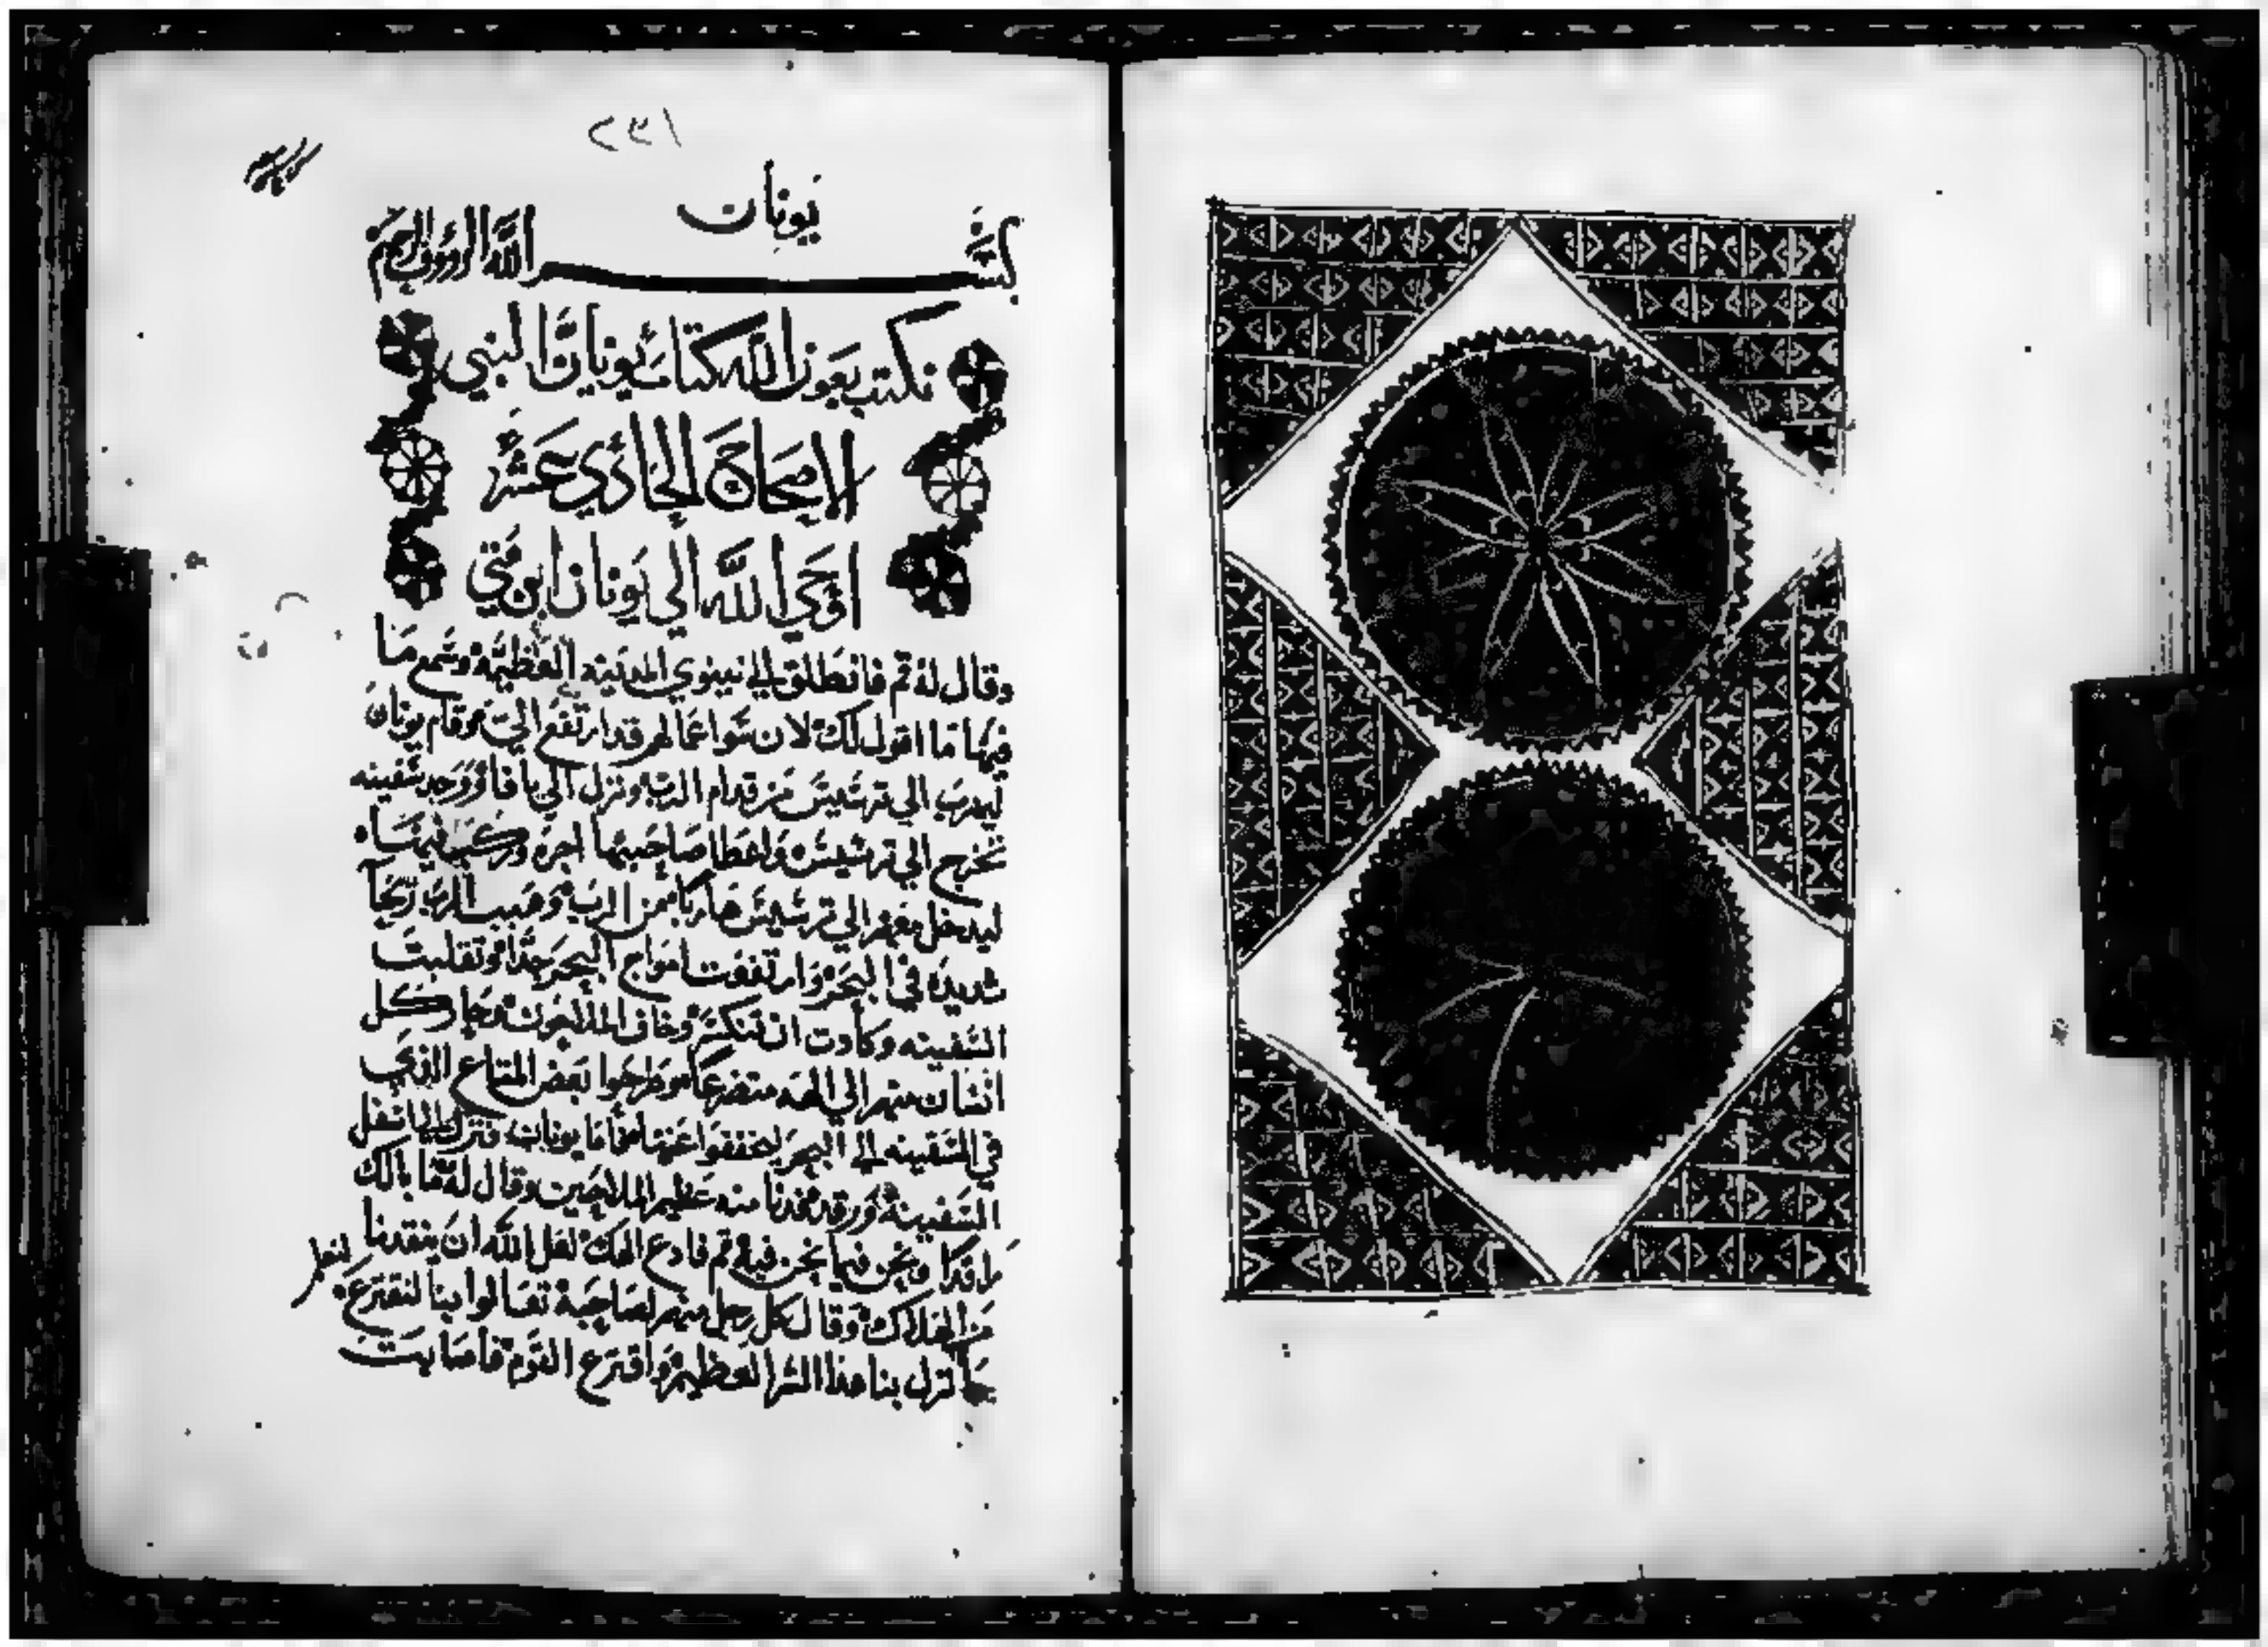 ٢٣١
يونان
بسم الله الرووف الرحيم
نكتب بعون الله كتاب يونان النبي
الاصحاح الحادي عشر
اوحي الله الي يونان ابن متي
وقال له قم فانطلق الي نينوي المدينه العظيمه وسمع
فيها ما اقول لك لان سوا عمالهم قد ارتفع الي وقام يونان
ليهرب الي ترشيش من قدام الرب ونزل الي يافا ووجد سفينه
تخرج الي ترشيش واعطا صاحبها اجره وركب فيها
ليدخل معهم الي ترشيش هاربا من الرب وهيب الرب ريحا
شديده في البحر وارتفعت امواج البحر جدا وتقلبت
السفينه وكادت ان تنكسر وخاف الملاحون وجا كل
انسان منهم الي الهه متضرعا وطرحوا بعض المتاع الذي
في السفينه الي البحر ليخففوا عنها فاما يونان فنزل الي اسفل
السفينه ورقد فدنا منه عظيم الملاحين وقال له ما بالك
راقدا ونحن فيما نحن فيه قم فادع الهك لعل الله ان ينقدنا
من الهلاك وقال كل رجل منهم لصاحبه تعالوا بنا لنقترع لنعلم
نزل بنا هذا الشر العظيم واقترع القوم فاصابت